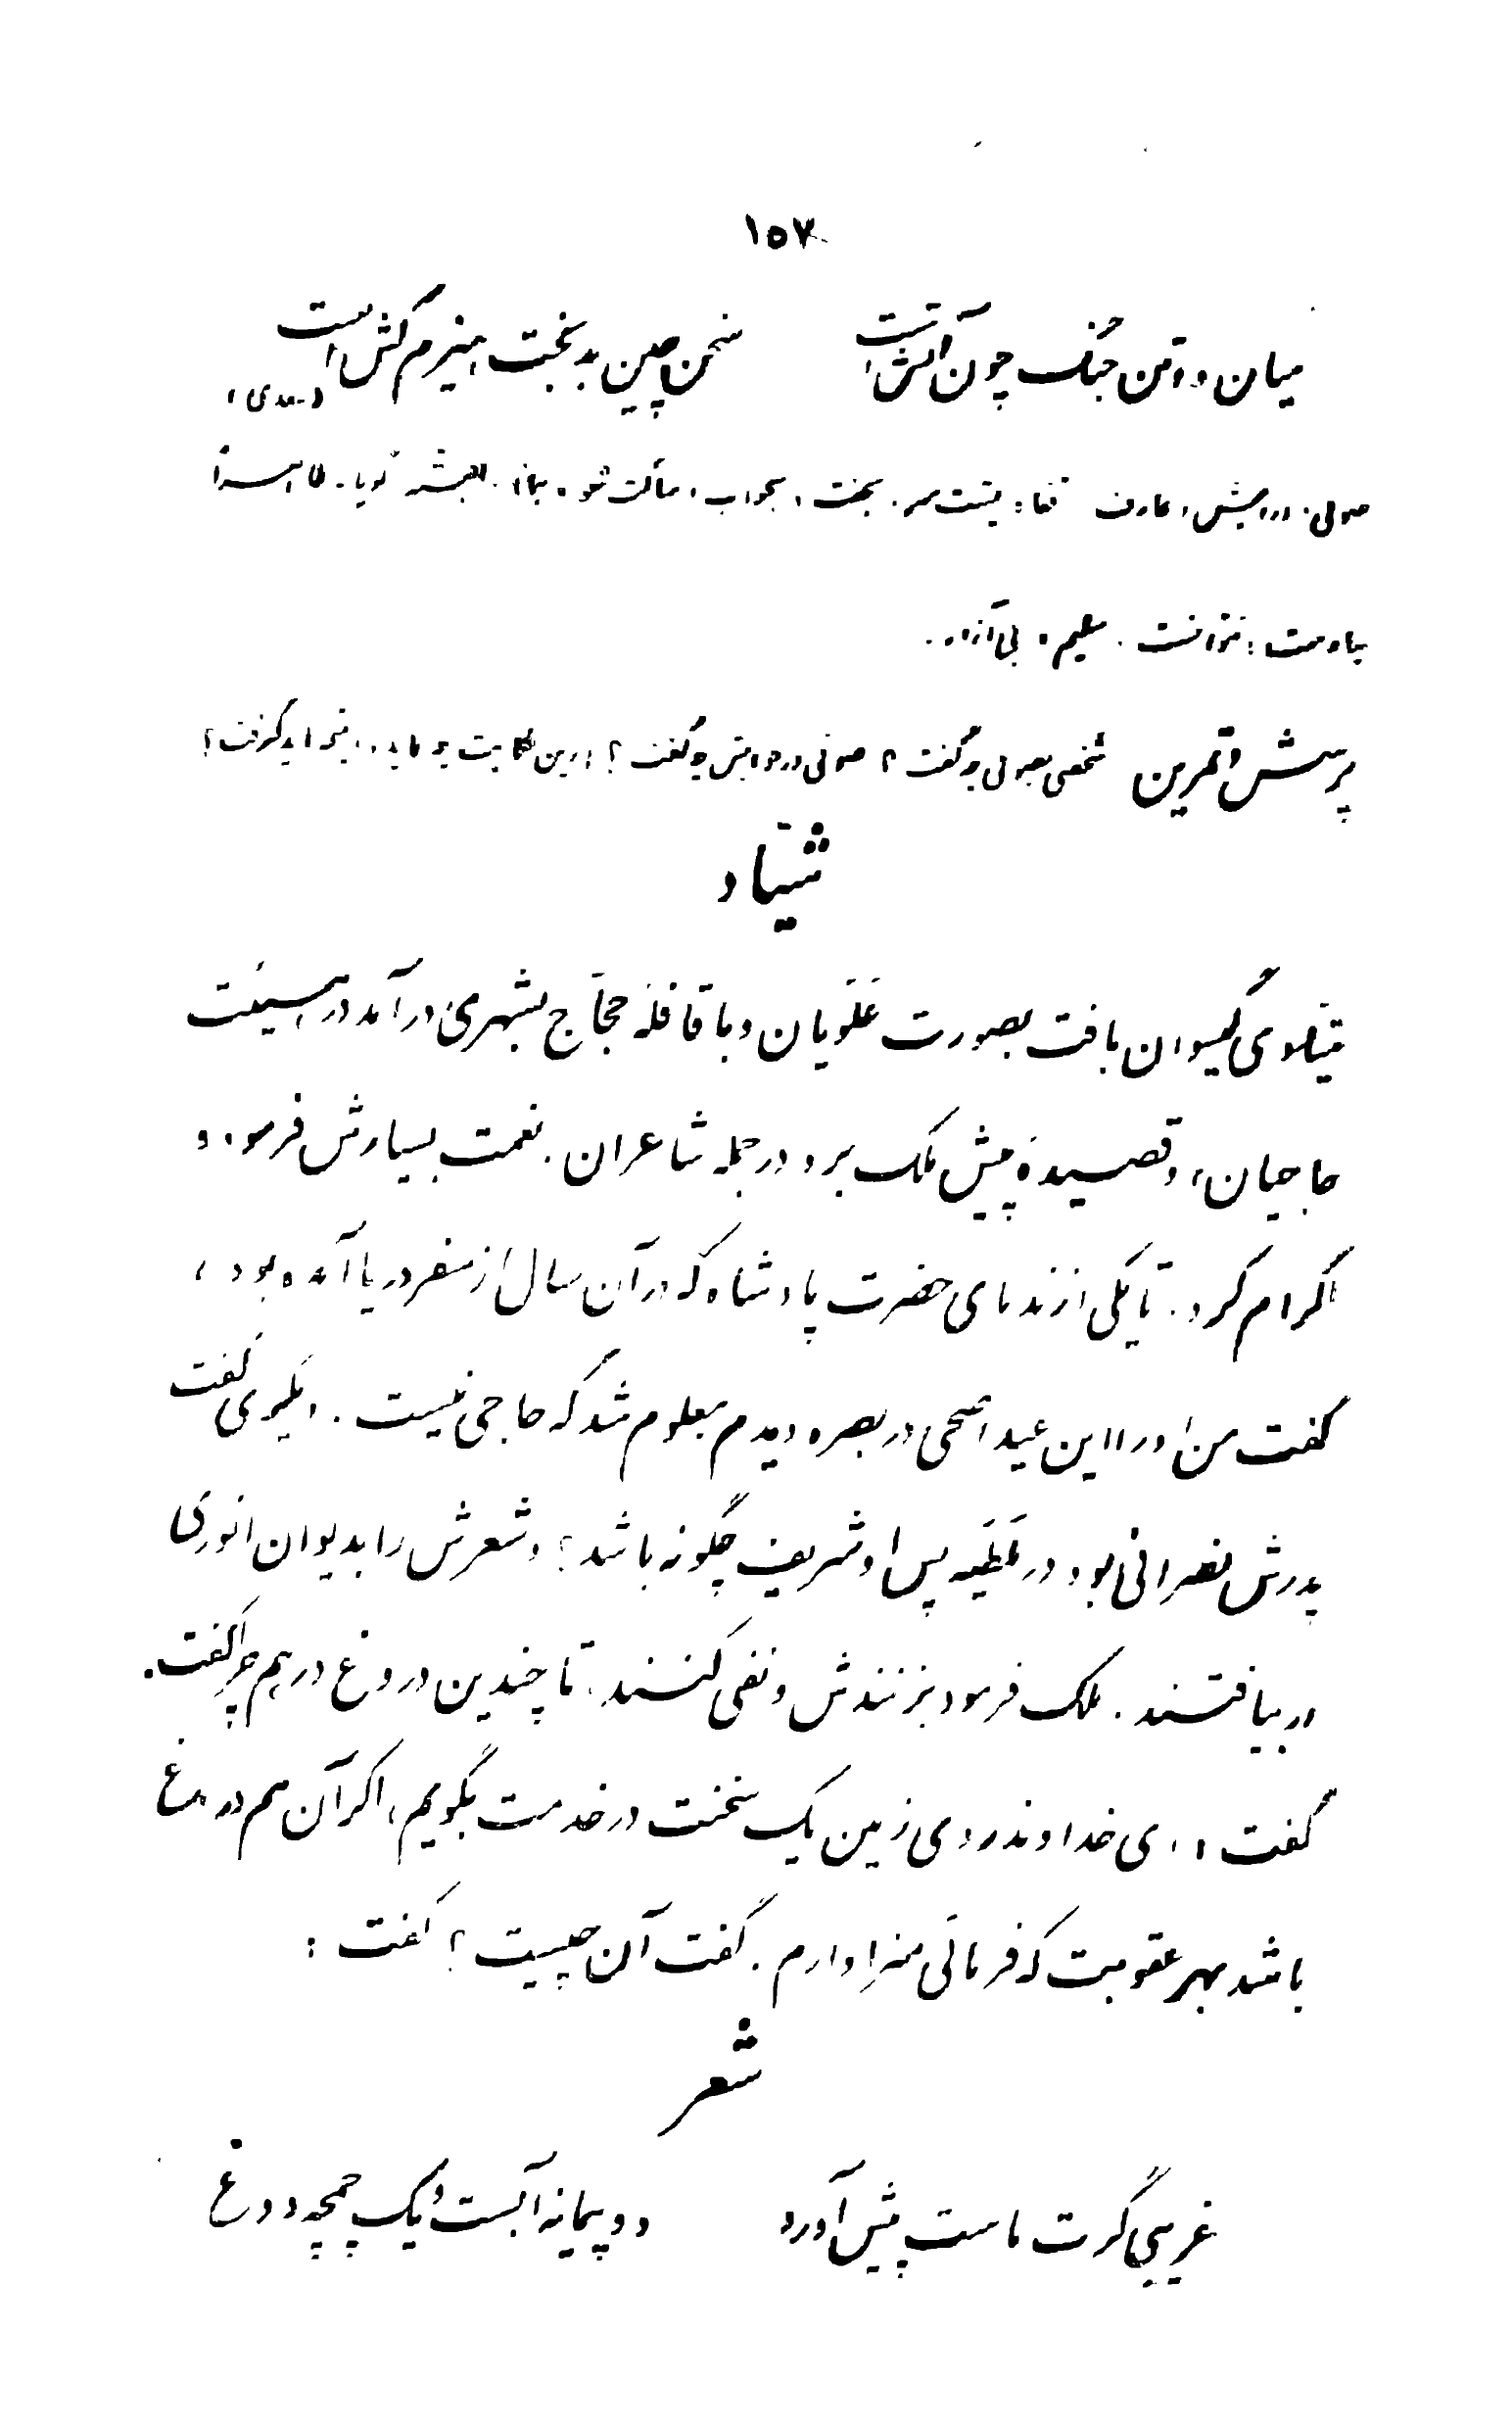 ۱۵۷
میان دو تن جنگ چون آتش است سخن چین بدبخت هیزم کش است
(سعدی)
صوفی: درویش، عارف قفا: پشت سر. بخفت، بخواب، ساکت شو. همانا، البته گویا. ظاهراً
یادست: نتوانست. سلیم، بی آزار.
پرسش و تمرین شخصی بصوفی چه گفت؟ صوفی در جوابش چه گفت؟ ازین حکایت چه باید نتیجه گرفت؟
شیّاد
شیّادی گیسوان بافت بصورت عَلَویان و با قافلهٔ حجّاج بشهری درآمد در هیئت
حاجیان، و قصیدهٔ پیش ملک برد در جمله شاعران. نعمت بسیارش فرمود و
اکرام کرد. تا یکی از ندمای حضرت پادشاه که در آن سال از سفر دریا آمده بود،
گفت من او را این عید اضحی در بصره دیدم معلوم شد که حاجی نیست. دیگری گفت
پدرش نصرانی بود در ملطیه پس او شریف چگونه باشد؟ و شعرش را بدیوان انوری
دریافتند. ملک فرمود بزنندش و نفی کنند. تا چندین دروغ درهم چرا گفت.
گفت ای خداوند روی زمین یک سخنت در خدمت بگویم، اگر آن هم دروغ
باشد بهر عقوبت که فرمائی سزاوارم. گفت آن چیست؟ گفت:
شعر
غریبی گرت ماست پیش آورد دو پیمانه آبست و یک چمچه دوغ